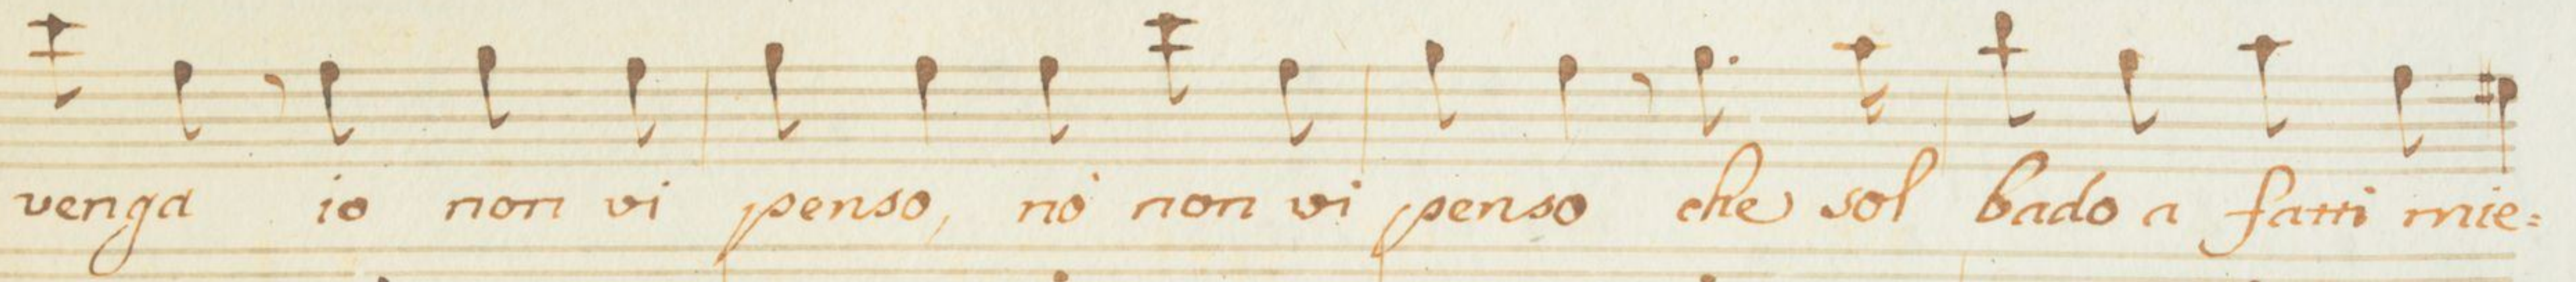 venga io non vi penso, nò non vi penso che sol bado a fatti mie=